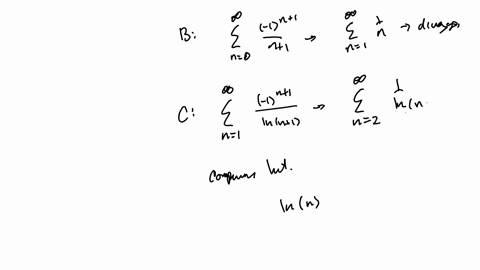 B: \sum_{n=0}^{\infty} \frac{(-1)^{n+1}}{n+1} → \sum_{n=1}^{\infty} \frac{1}{n} → diverges
C: \sum_{n=1}^{\infty} \frac{(-1)^{n+1}}{\ln(n+1)} → \sum_{n=2}^{\infty} \frac{1}{\ln(n
ln(n)